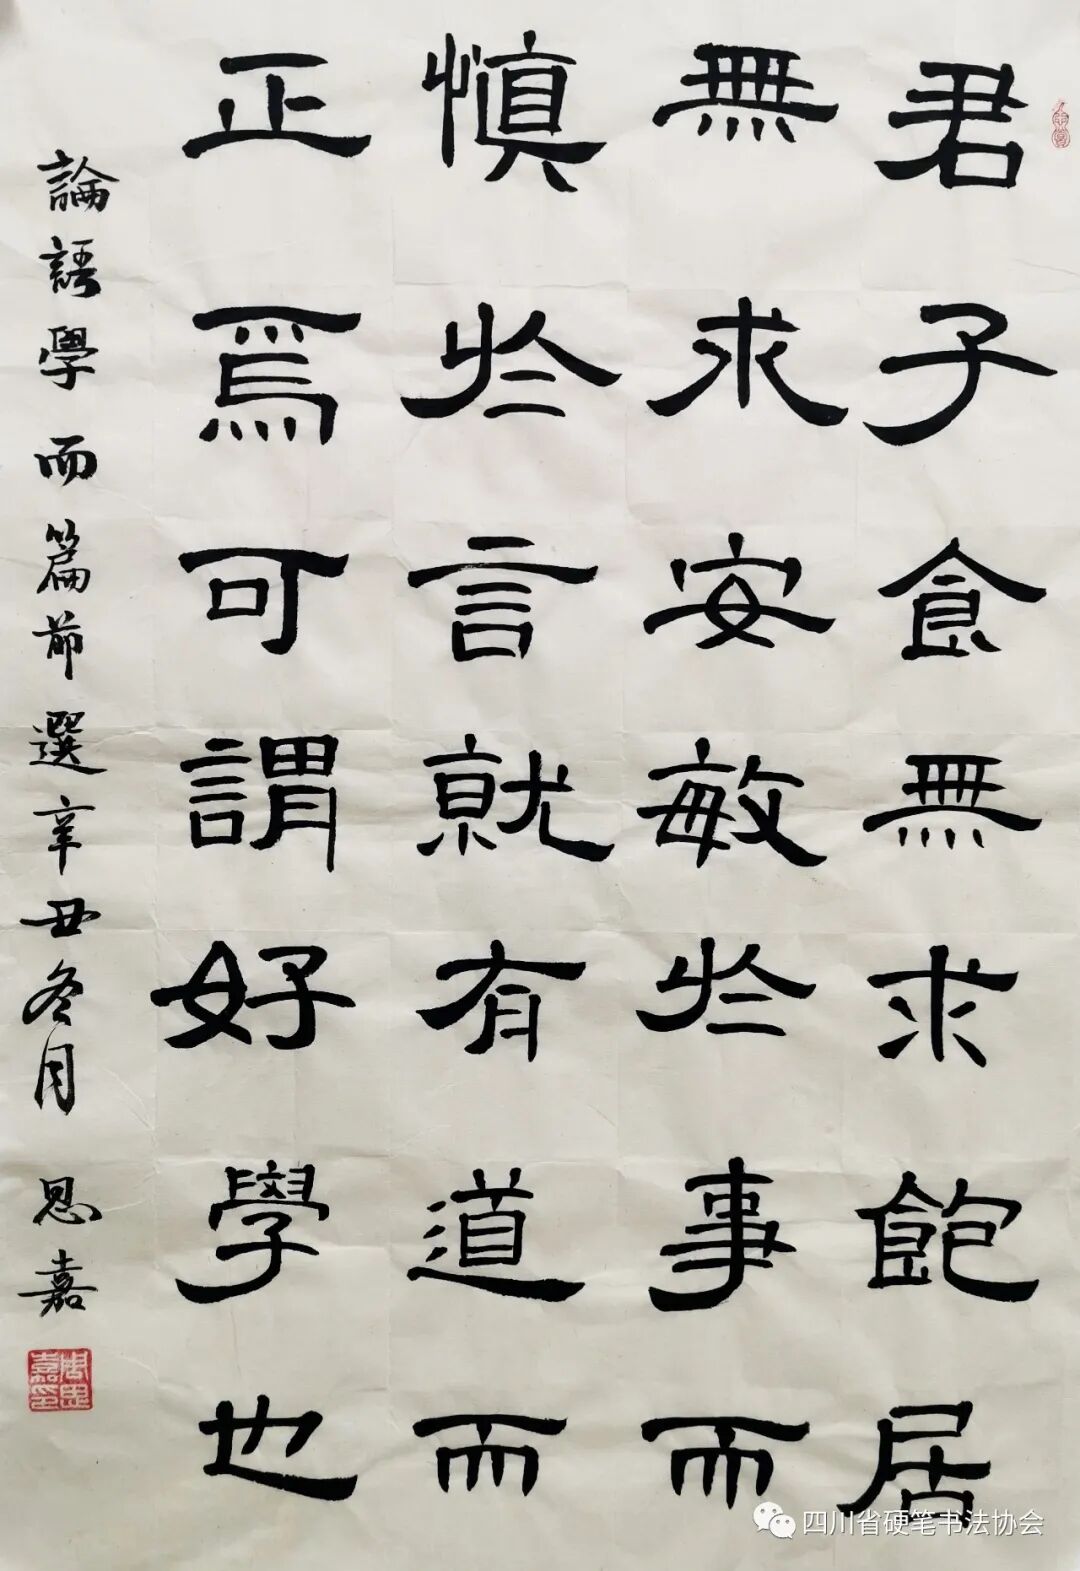 君子食無求飽居
無求安敏於事而
慎於言就有道而
正焉可謂好學也
論語學而篇節選辛丑冬月 思嘉
四川省硬笔书法协会